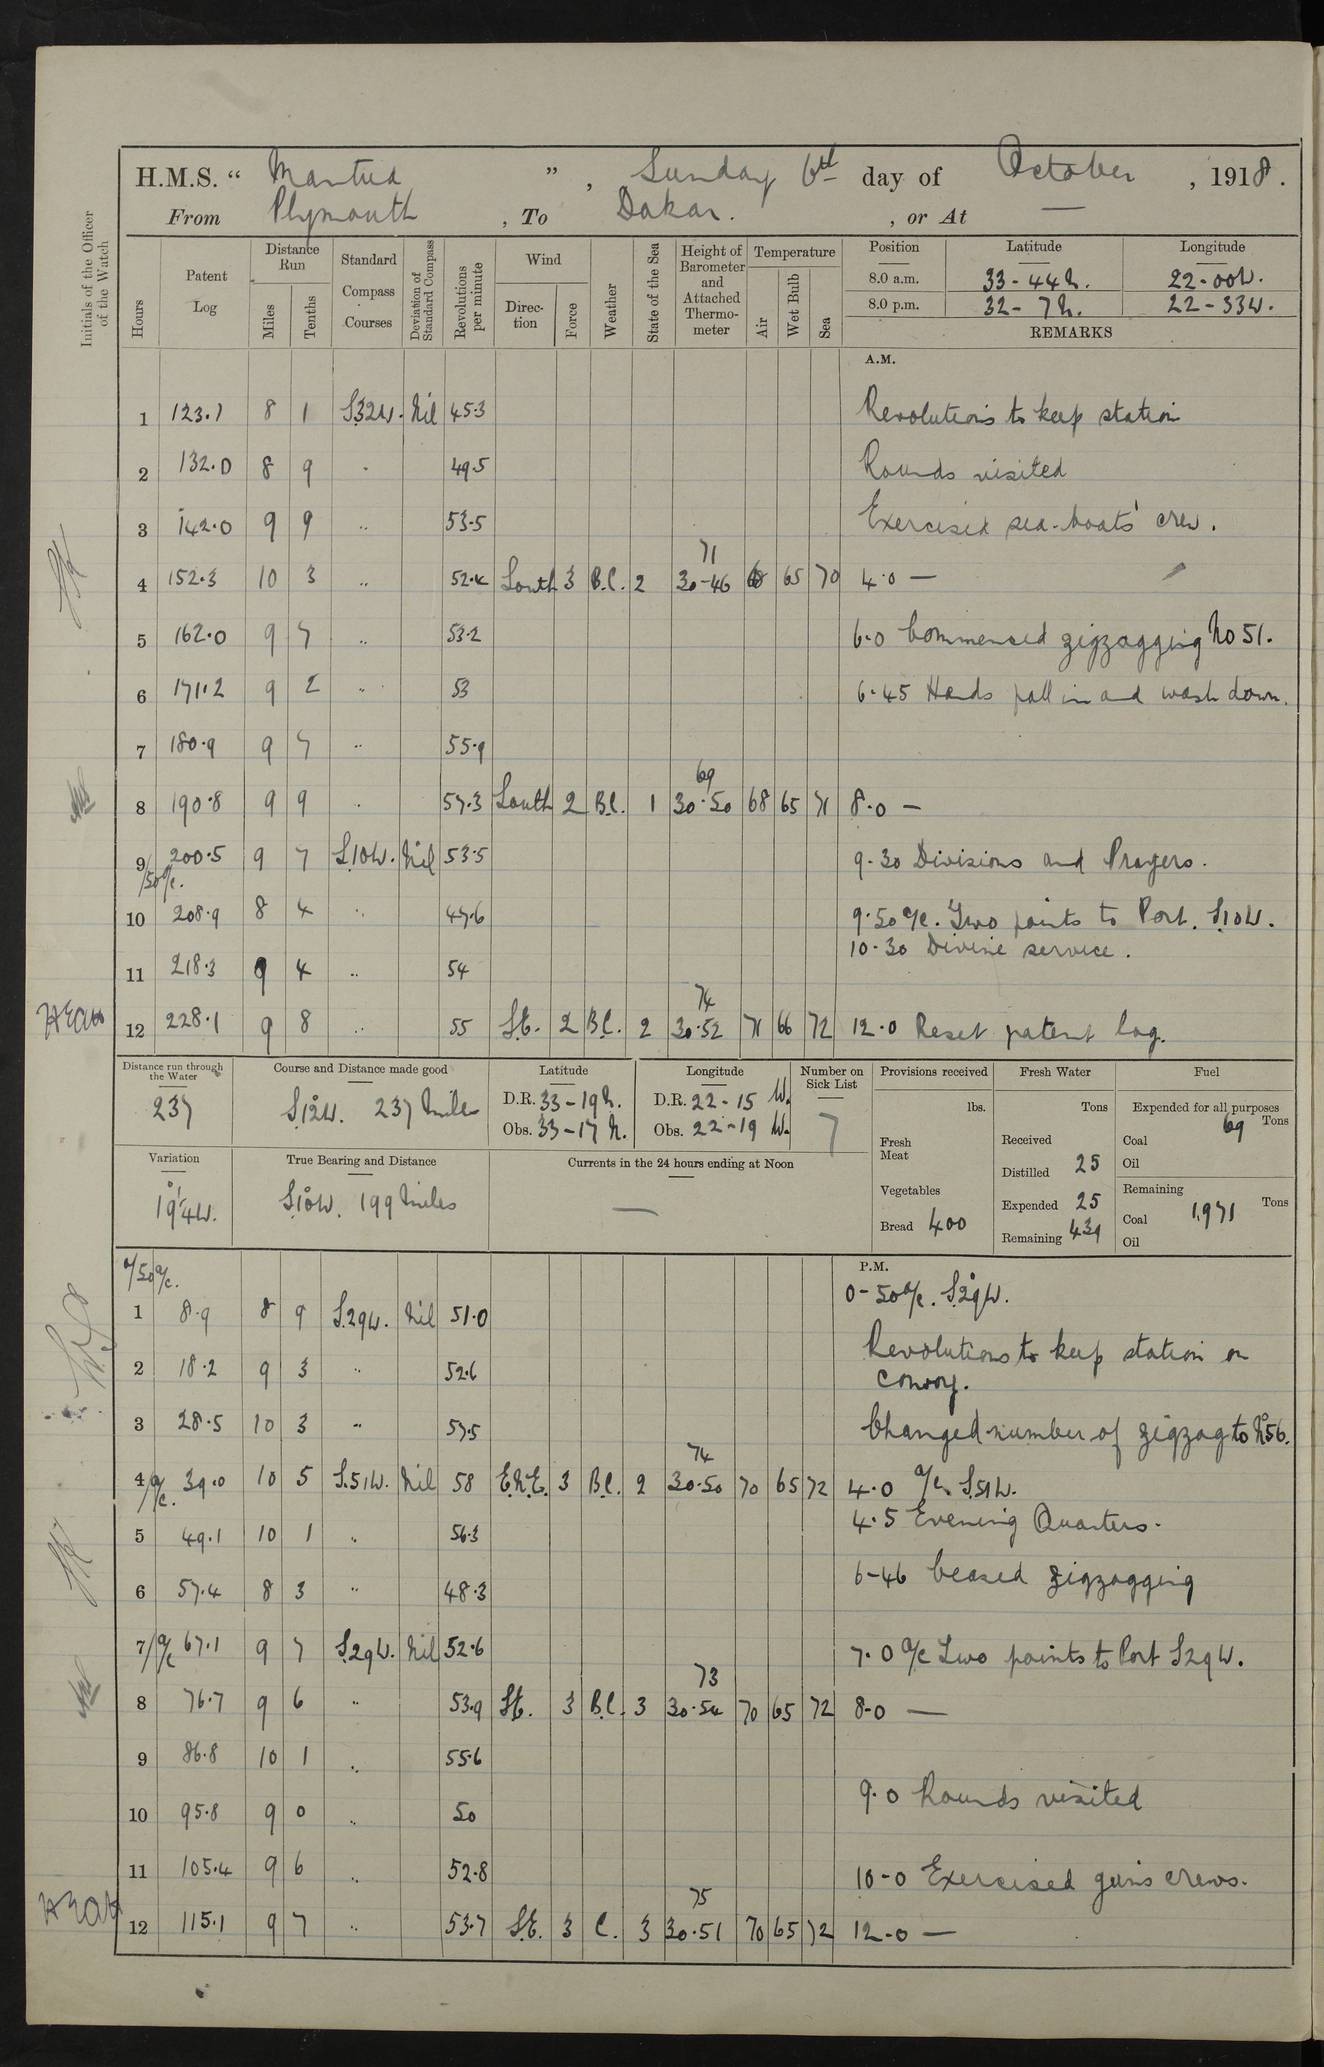 H.M.S. “ Mantua ” , Sunday 6th day of October , 1918 .
From Plymouth , To Dakar. , or At —
Initials of the Officer of the Watch
Hours
Patent Log
Distance Run
Miles
Tenths
Standard Compass Courses
Deviation of Standard Compass
Revolutions per minute
Wind
Direction
Force
Weather
State of the Sea
Height of Barometer and Attached Thermometer
Temperature
Air
Wet Bulb
Sea
Position Latitude Longitude
8.0 a.m. 33-44 N. 22-00 W.
8.0 p.m. 32-7 N. 22-33 W.
REMARKS
A.M.
1 123.1 8 1 S32W. Nil 45.3 Revolutions to keep station
2 132.0 8 9 " 49.5 Rounds visited
3 142.0 9 9 " 53.5 Exercised sea-boats' crew.
71
4 152.3 10 3 " 52.4 South 3 B.C. 2 30-46 65 70 4.0 —
5 162.0 9 7 " 53.2 6.0 Commenced zigzagging No 51.
6 171.2 9 2 " 53 6.45 Hands fall in and wash down.
7 180.9 9 7 " 55.9
69
8 190.8 9 9 " 57.3 South 2 B.C. 1 30.50 68 65 71 8.0 —
9 200.5 9 7 S.10W. Nil 53.5 9.30 Divisions and Prayers.
/50 a/c.
10 208.9 8 4 " 47.6 9.50 a/c. Two points to Port. S10W.
10-30 Divine service.
11 218.3 9 4 " 54
74
12 228.1 9 8 " 55 S.E. 2 B.C. 2 30.52 71 66 72 12.0 Reset patent log.
Distance run through the Water
237
Course and Distance made good
S12°W. 237 Miles
Latitude
D.R. 33-19 N.
Obs. 33-17 N.
Longitude
D.R. 22-15 W.
Obs. 22-19 W.
Number on Sick List
7
Provisions received
lbs.
Fresh Meat
Vegetables
Bread 400
Fresh Water
Tons
Received
Distilled 25
Expended 25
Remaining 439
Fuel
Expended for all purposes
Tons
Coal 69
Oil
Remaining
Tons
Coal 1,971
Oil
Variation
19°14'W.
True Bearing and Distance
S10°W. 199 Miles
Currents in the 24 hours ending at Noon
—
P.M.
0/50 a/c. 0-50 a/c. S.29°W.
1 8.9 8 9 S.29W. Nil 51.0
2 18.2 9 3 " 52.6 Revolutions to keep station on
convoy.
3 28.5 10 3 " 57.5 Changed number of zigzag to No 56.
74
4/a/c. 39.0 10 5 S.51W. Nil 58 E.N.E. 3 B.C. 2 30.50 70 65 72 4.0 a/c. S51W.
4.5 Evening Quarters.
5 49.1 10 1 " 56.3
6 57.4 8 3 " 48.3 6-46 Ceased zigzagging
7/a/c 67.1 9 7 S.29W. Nil 52.6 7.0 a/c Two points to Port S29W.
73
8 76.7 9 6 " 53.9 S.E. 3 B.C. 3 30.54 70 65 72 8-0 —
9 86.8 10 1 " 55.6
10 95.8 9 0 " 50 9.0 Rounds visited
11 105.4 9 6 " 52.8 10-0 Exercised guns crews.
75
12 115.1 9 7 " 53.7 S.E. 3 C. 3 30.51 70 65 72 12-0 —